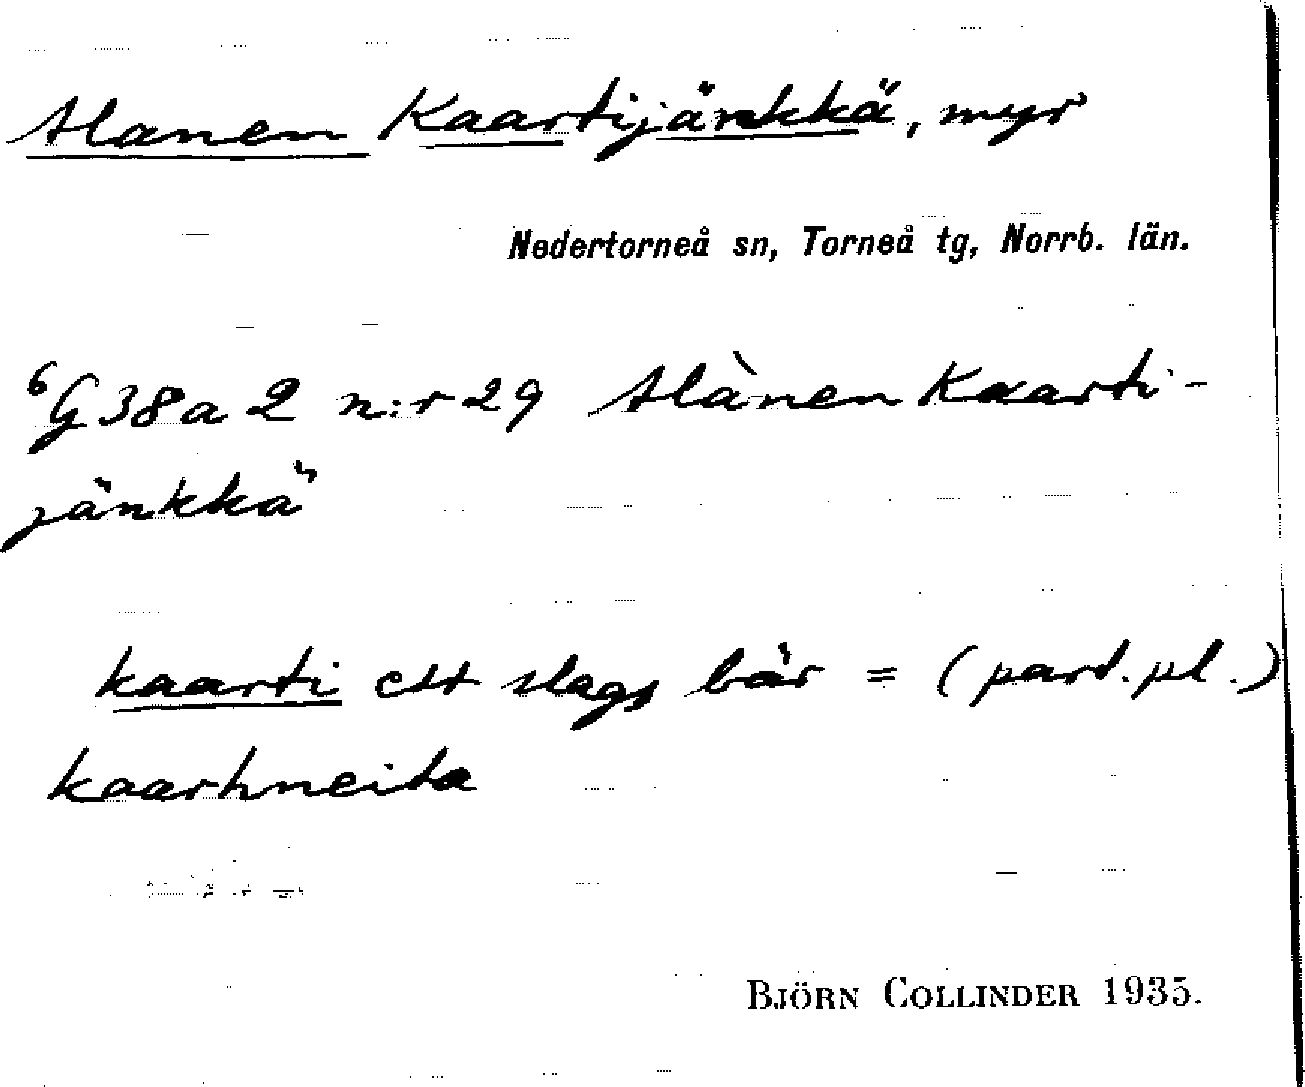 Alanen Kaartijänkkä, myr
Nedertorneå sn, Torneå tg, Norrb. län.
⁶G 38 a 2 n:r 29 Alànen Kaarti-
jänkkä
kaarti ett slags bär = (part. pl.)
kaarhneita
BJÖRN COLLINDER 1935.